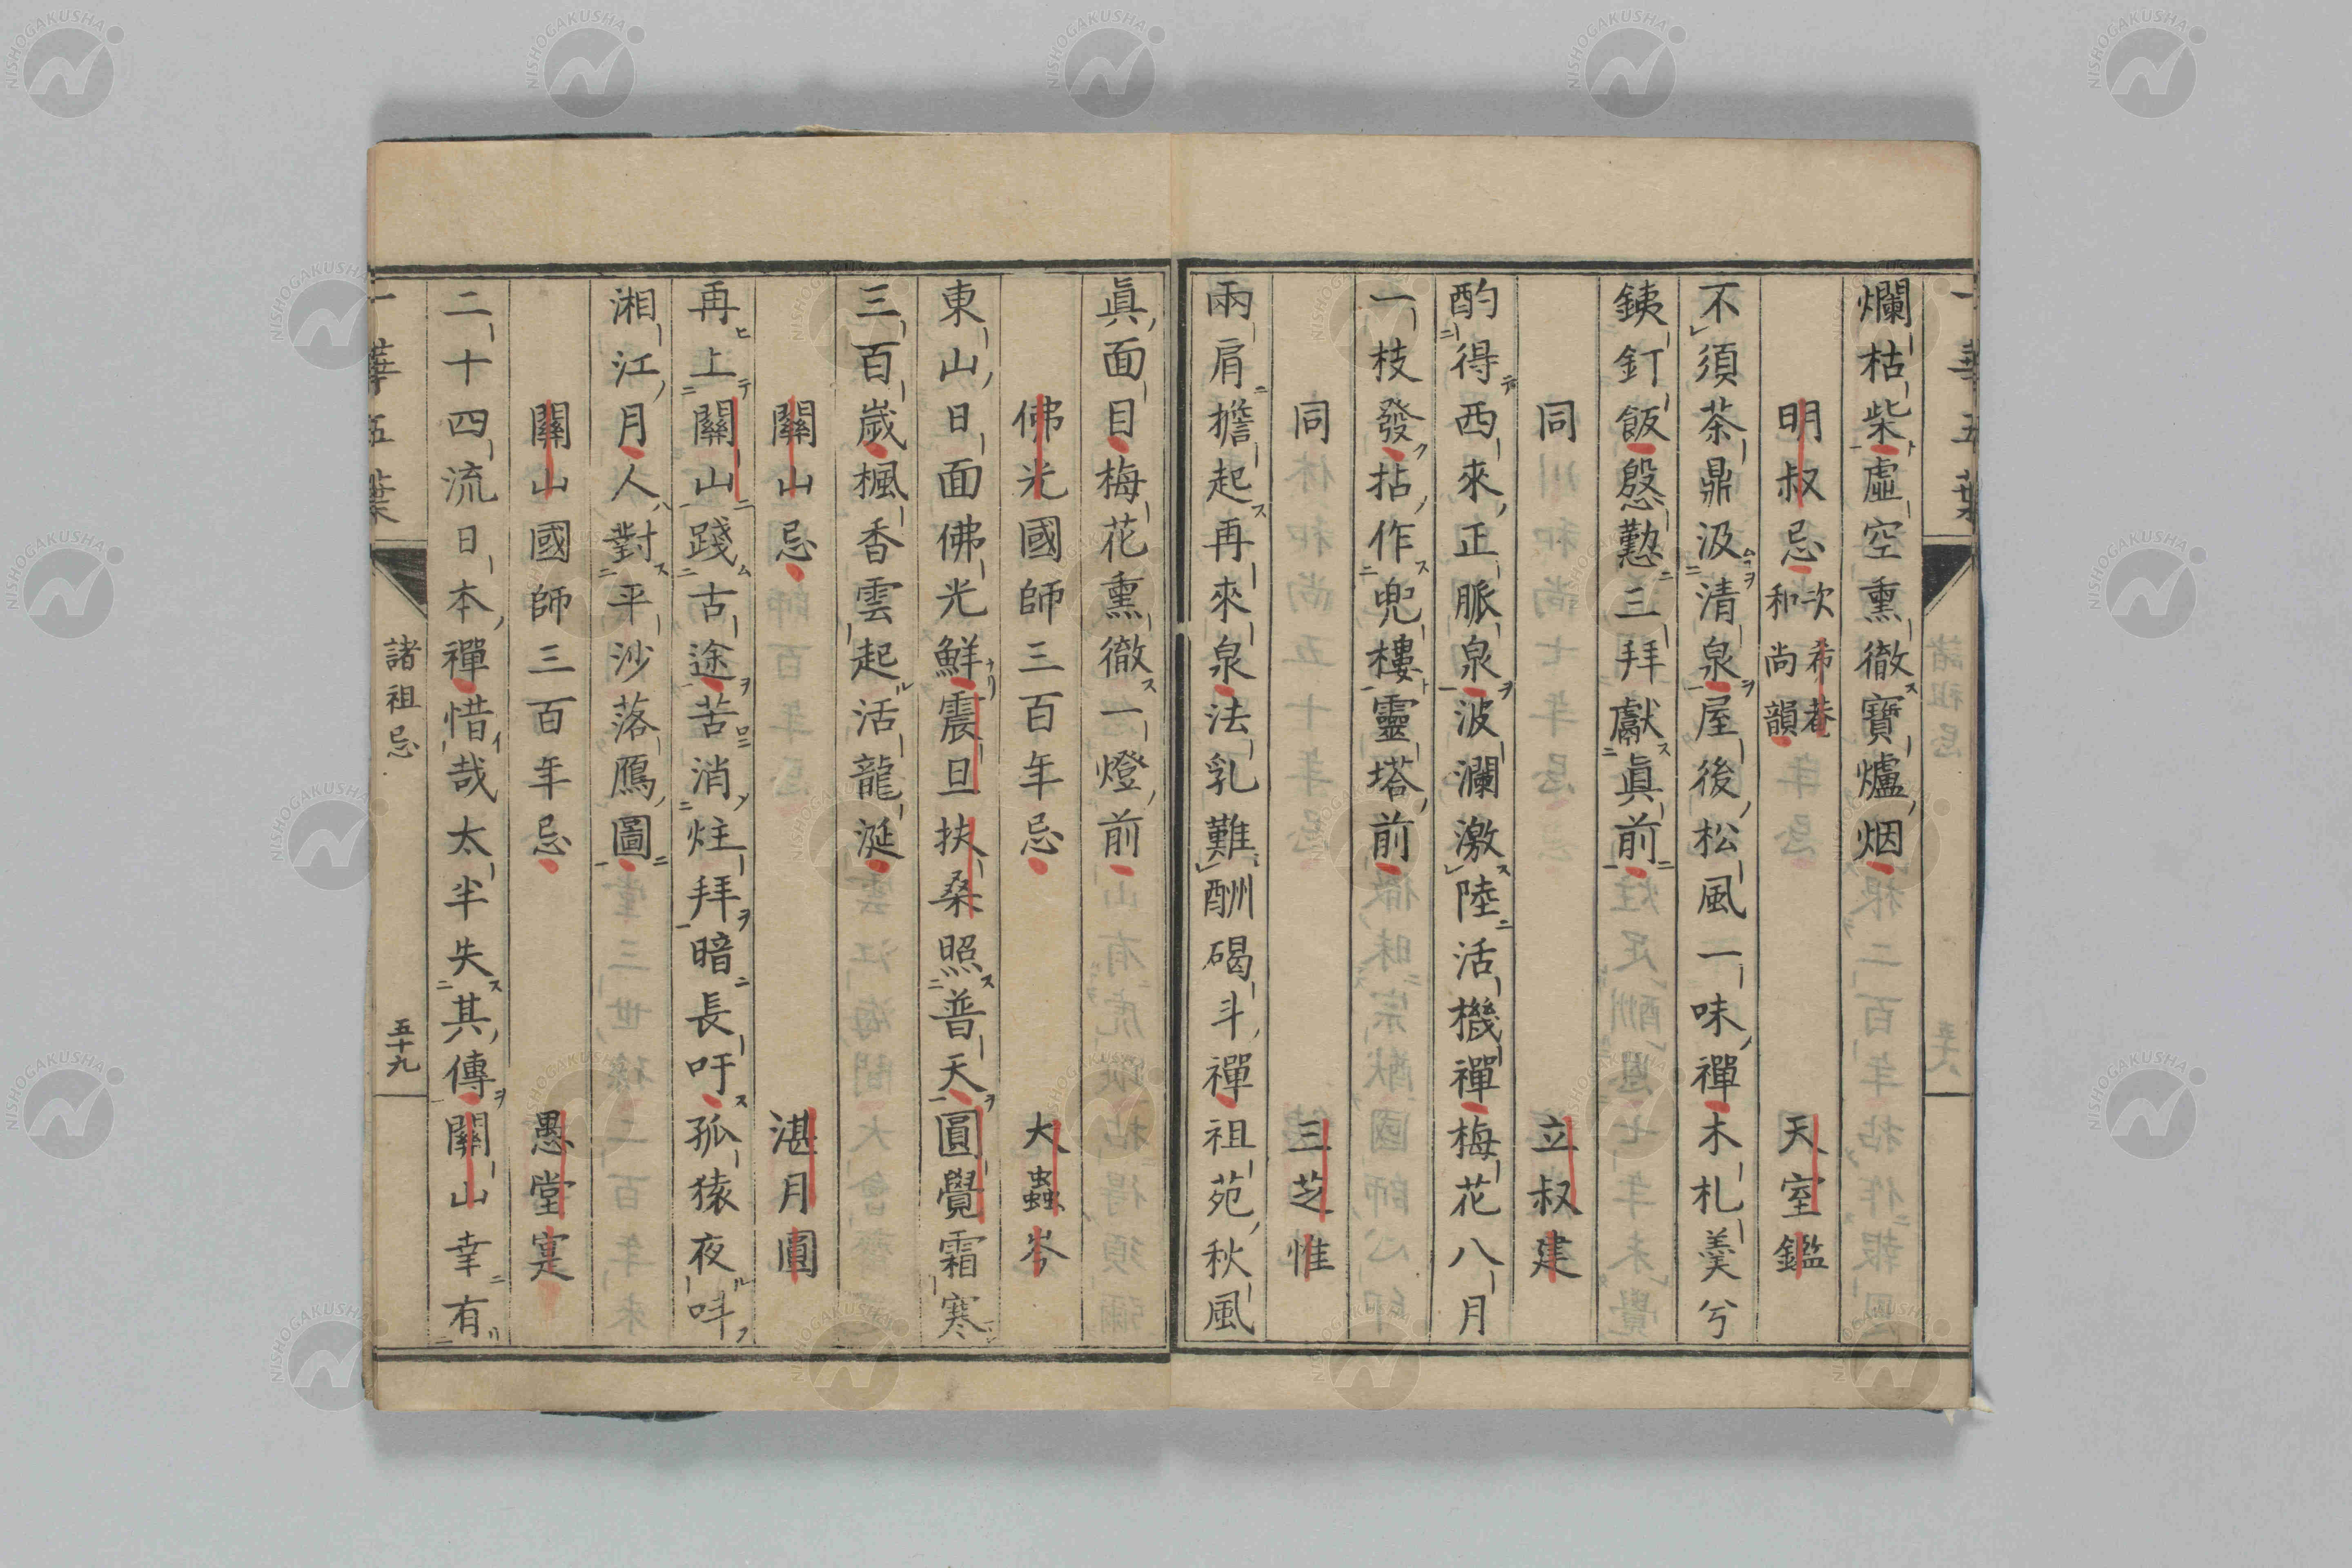 爛枯柴虛空熏徹寶爐烟
明叔忌次希菴和尚韻 天室鑑
不須茶鼎汲清泉屋後松風一味禪木札羹兮
銕釘飯慇懃三拜獻眞前
同 立叔建
酌得西來正脈泉波瀾激陸活機禪梅花八月
一枝發拈作兜樓靈塔前
同 三芝惟
兩肩擔起再來泉法乳難酬碣斗禪祖苑秋風
眞面目梅花熏徹一燈前
佛光國師三百年忌 大蟲岑
東山日面佛光鮮震旦扶桑照普天圓覺霜寒
三百歲楓香雲起活龍涎
關山忌 湛月圓
再上關山踐古途苦消炷拜暗長吁孤猿夜呌
湘江月人對平沙落鴈圖
關山國師三百年忌 愚堂寔
二十四流日本禪惜哉太半失其傳關山幸有
一華五葉 諸祖忌 五十九
NISHOGAKUSHA